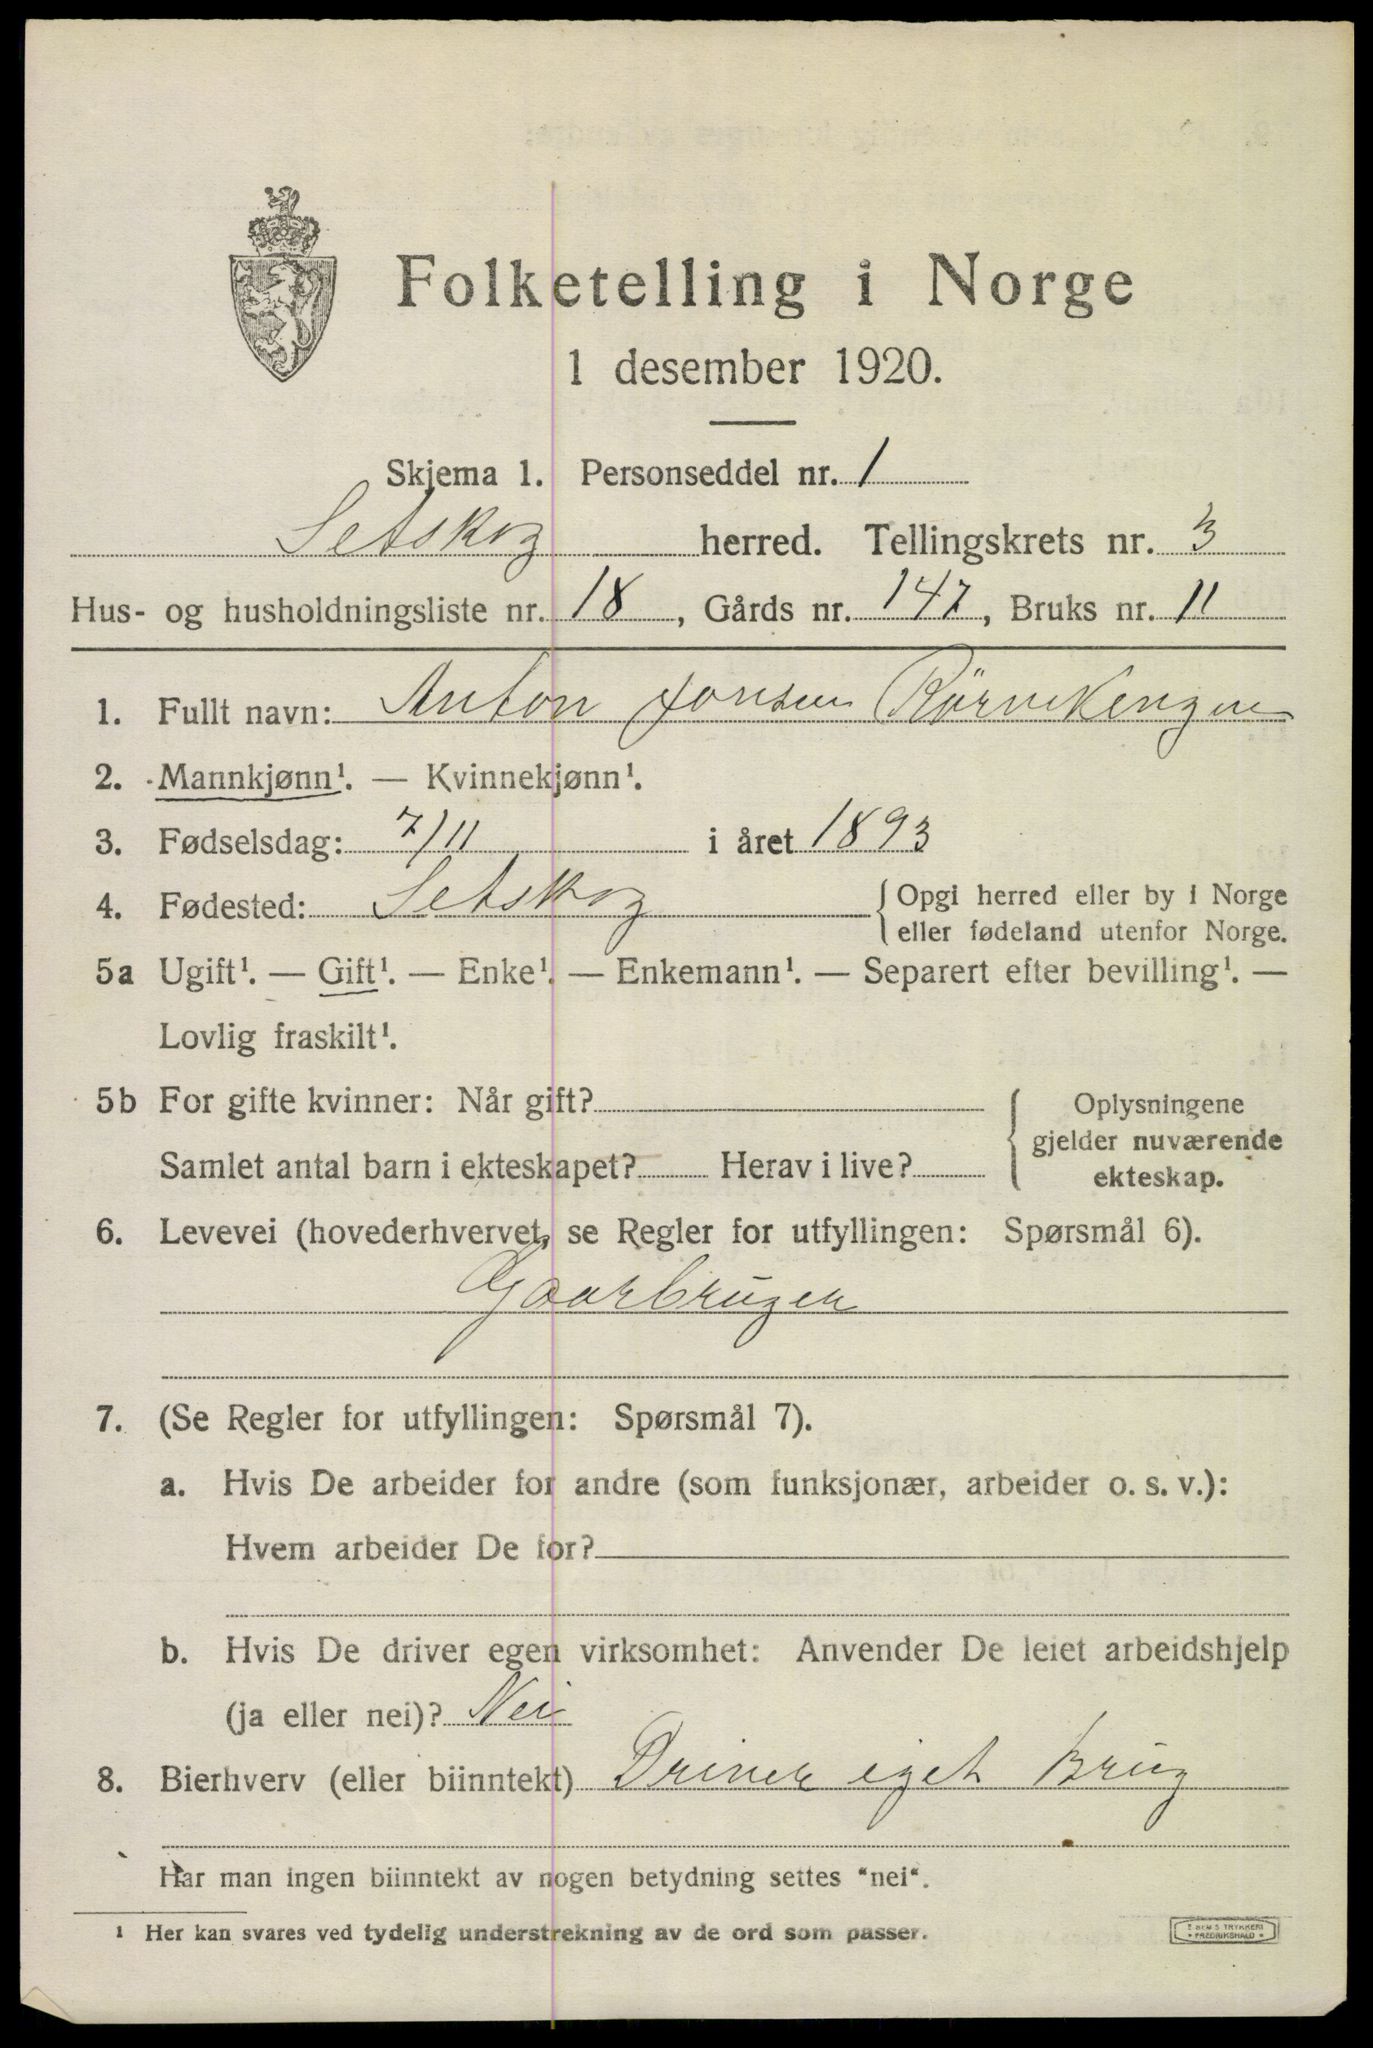 Folketelling i Norge
1 desember 1920.
Skjema 1. Personseddel nr. 1
Setskog herred. Tellingskrets nr. 3
Hus- og husholdningsliste nr. 18, Gårds nr. 147, Bruks nr. 11
1. Fullt navn: Anton Jonsen
2. Mannkjønn¹. — Kvinnekjønn¹.
3. Fødselsdag: 7/11 i året 1893
4. Fødested: Setskog { Opgi herred eller by i Norge
eller fødeland utenfor Norge.
5a Ugift¹. — Gift¹. — Enke¹. — Enkemann¹. — Separert efter bevilling¹. —
Lovlig fraskilt¹.
5b For gifte kvinner: Når gift?
Samlet antal barn i ekteskapet? Herav i live?
{ Oplysningene
gjelder nuværende
ekteskap.
6. Levevei (hovederhvervet, se Regler for utfyllingen: Spørsmål 6).
Gaarbruger
7. (Se Regler for utfyllingen: Spørsmål 7).
a. Hvis De arbeider for andre (som funksjonær, arbeider o. s. v.):
Hvem arbeider De for?
b. Hvis De driver egen virksomhet: Anvender De leiet arbeidshjelp
(ja eller nei)? Nei
8. Bierhverv (eller biinntekt) Driver eget Brug
Har man ingen biinntekt av nogen betydning settes "nei".
¹ Her kan svares ved tydelig understrekning av de ord som passer.
TRYKKERI
FREDRIKSHALD